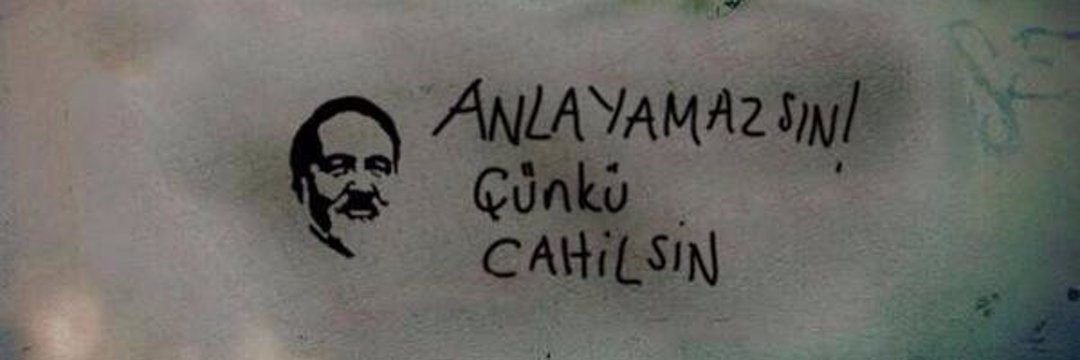 ANLAYAMAZSIN!
Çünkü
CAHİLSİN